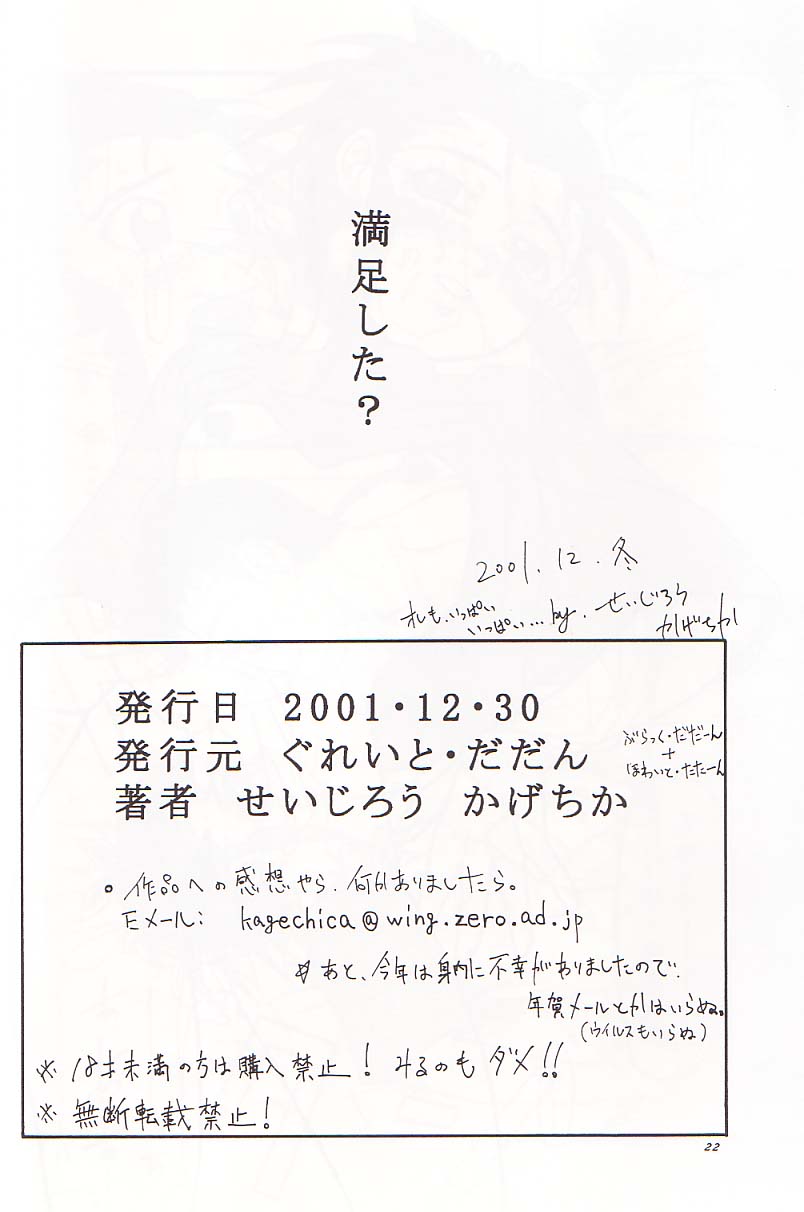 満足した？
2001.12.冬
オレも、いっぱい
いっぱい… by. せいじろう
かげちか
発行日 2001・12・30
発行元 ぐれいと・だだん
ぶらっく・だだーん
+
ほわいと・たたーん
著者 せいじろう かげちか
。作品への感想やら、何かありましたら。
Eメール： kagechica@wing.zero.ad.jp
あと、今年は身内に不幸がありましたので、
年賀メールとかはいらぬ。
(ウイルスもいらぬ)
※ 18才未満の方は購入禁止！ みるのもダメ!!
※ 無断転載禁止！
22